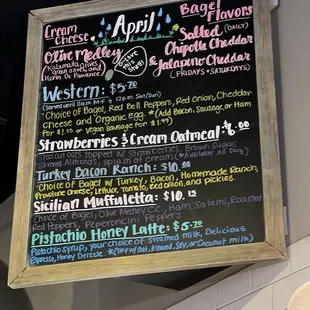 April
Cream
Cheese
Olive Medley
Kalamata olives
green olives and
Herbs De Provence
Bagel
Flavors
Salted (DAILY)
Chipotle Cheddar
Jalapeño Cheddar
(FRIDAYS + SATURDAYS)
Western: $5.70
Choice of Bagel, Red bell Peppers, Red onion, Cheddar
Cheese and Organic egg. *(Add Bacon, Sausage, or Ham
for $1.75 or vegan Sausage for $1.99)
Strawberries & Cream Oatmeal: $6.00
Steel cut oats topped w/ Strawberries, Brown Sugar,
Sliced Almonds, Splash of cream (*Available All Day)
Turkey Bacon Ranch: $10.00
Choice of Bagel w/ Turkey, Bacon, Homemade Ranch,
Provolone cheese, Lettuce, Tomato, Red onion, and pickles.
Sicilian Muffuletta: $10.15
Choice of Bagel, Olive Medley CC, Ham, Salami, Roasted
Red Peppers, Peperoncini Peppers
Pistachio Honey Latte: $5.70
Pistachio syrup, your choice of steamed milk, Delicious
Espresso, Honey Drizzle *(Try w/ Oat, Almond, Soy, or Coconut milk)